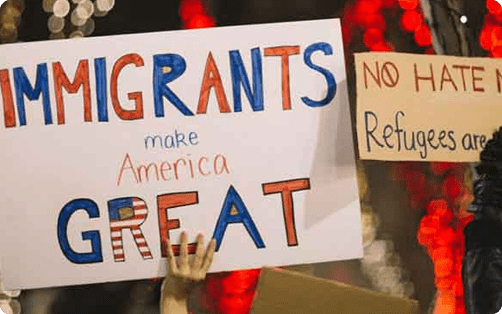 IMMIGRANTS
make
America
GREAT
NO HATE
Refugees are